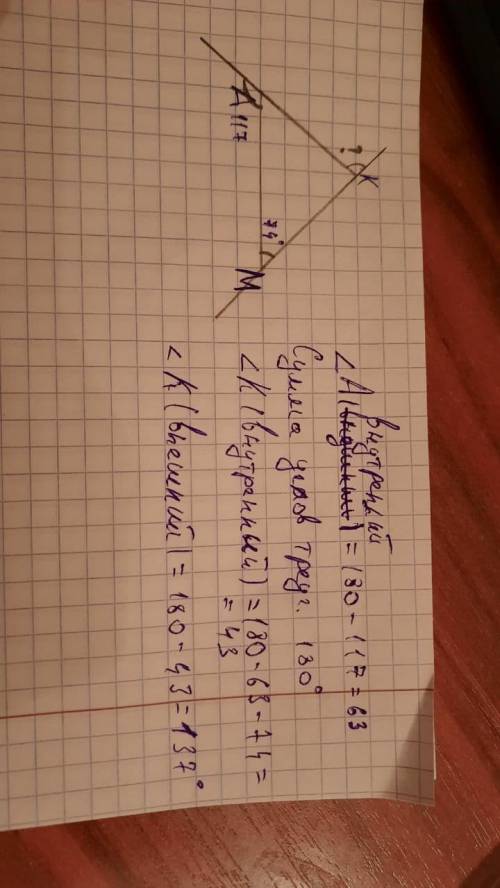 A
117
?
K
74°
M
внутренний
<A( ) = 180 - 117 = 63
Сумма углов треуг. 180°
<K(внутренный) = 180 - 63 - 74 =
= 43
<K(внешний) = 180 - 43 = 137°